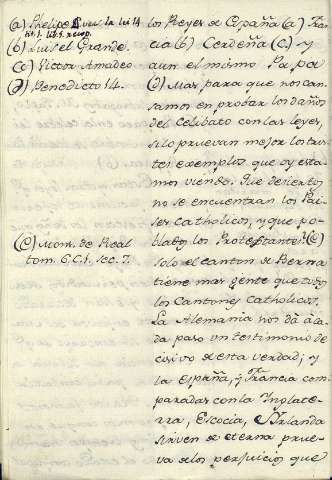 (a) Phelipe 4 en la lei 14
tit. 1. lib. 5. recop.
(b) Luis el Grande.
(c) Victor Amadeo
(d) Benedicto 14.
los Reyes de España (a) Fran
cia (b) Cerdeña (c) y
aun el mismo Papa
(d) Mas para que nos can
samos en probar los daños
del Celibato con las leyes,
si lo pruevan mejor los tris
tes exemplos que oy esta
mos viendo. Que desiertos
no se encuentran los Pai
ses Catholicos, y que po
blados los Protestantes? (e)
solo el canton de Berna
tiene mas gente que todos
los Cantones Catholicos.
La Alemania nos dà à ca
da paso un testimonio de
cisivo de esta verdad; y
la España, y Francia com
paradas con la Inglate
rra, Escocia, Irlanda
sirven de eterna prue
va de los perjuicios que
(e) Mons. de Real
tom. 6. C. 1. sec. 7.